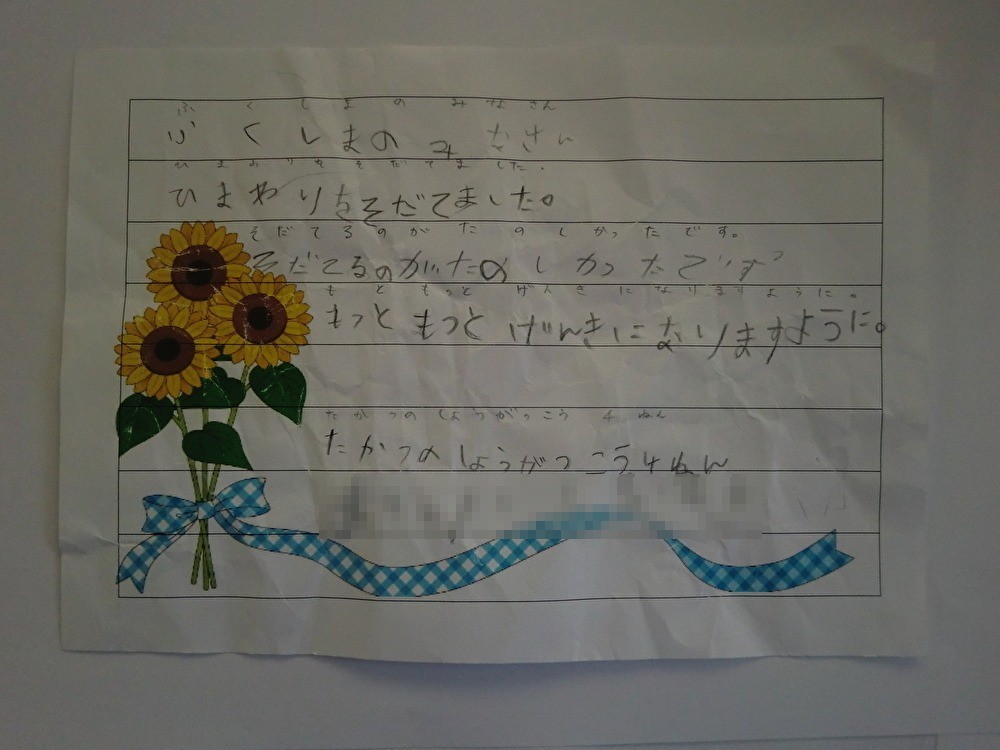 ふくしまのみなさん
ふくしまのみなさん
ひまわりをそだてました。
ひまやりをそだてました。
そだてるのがたのしかったです。
そだてるのがたのしかったです。
もともっとげんきになりますように。
もっともっとげんきになりますように。
たかつのしょうがっこう4ねん
たかつのしょうがつこう4ねん